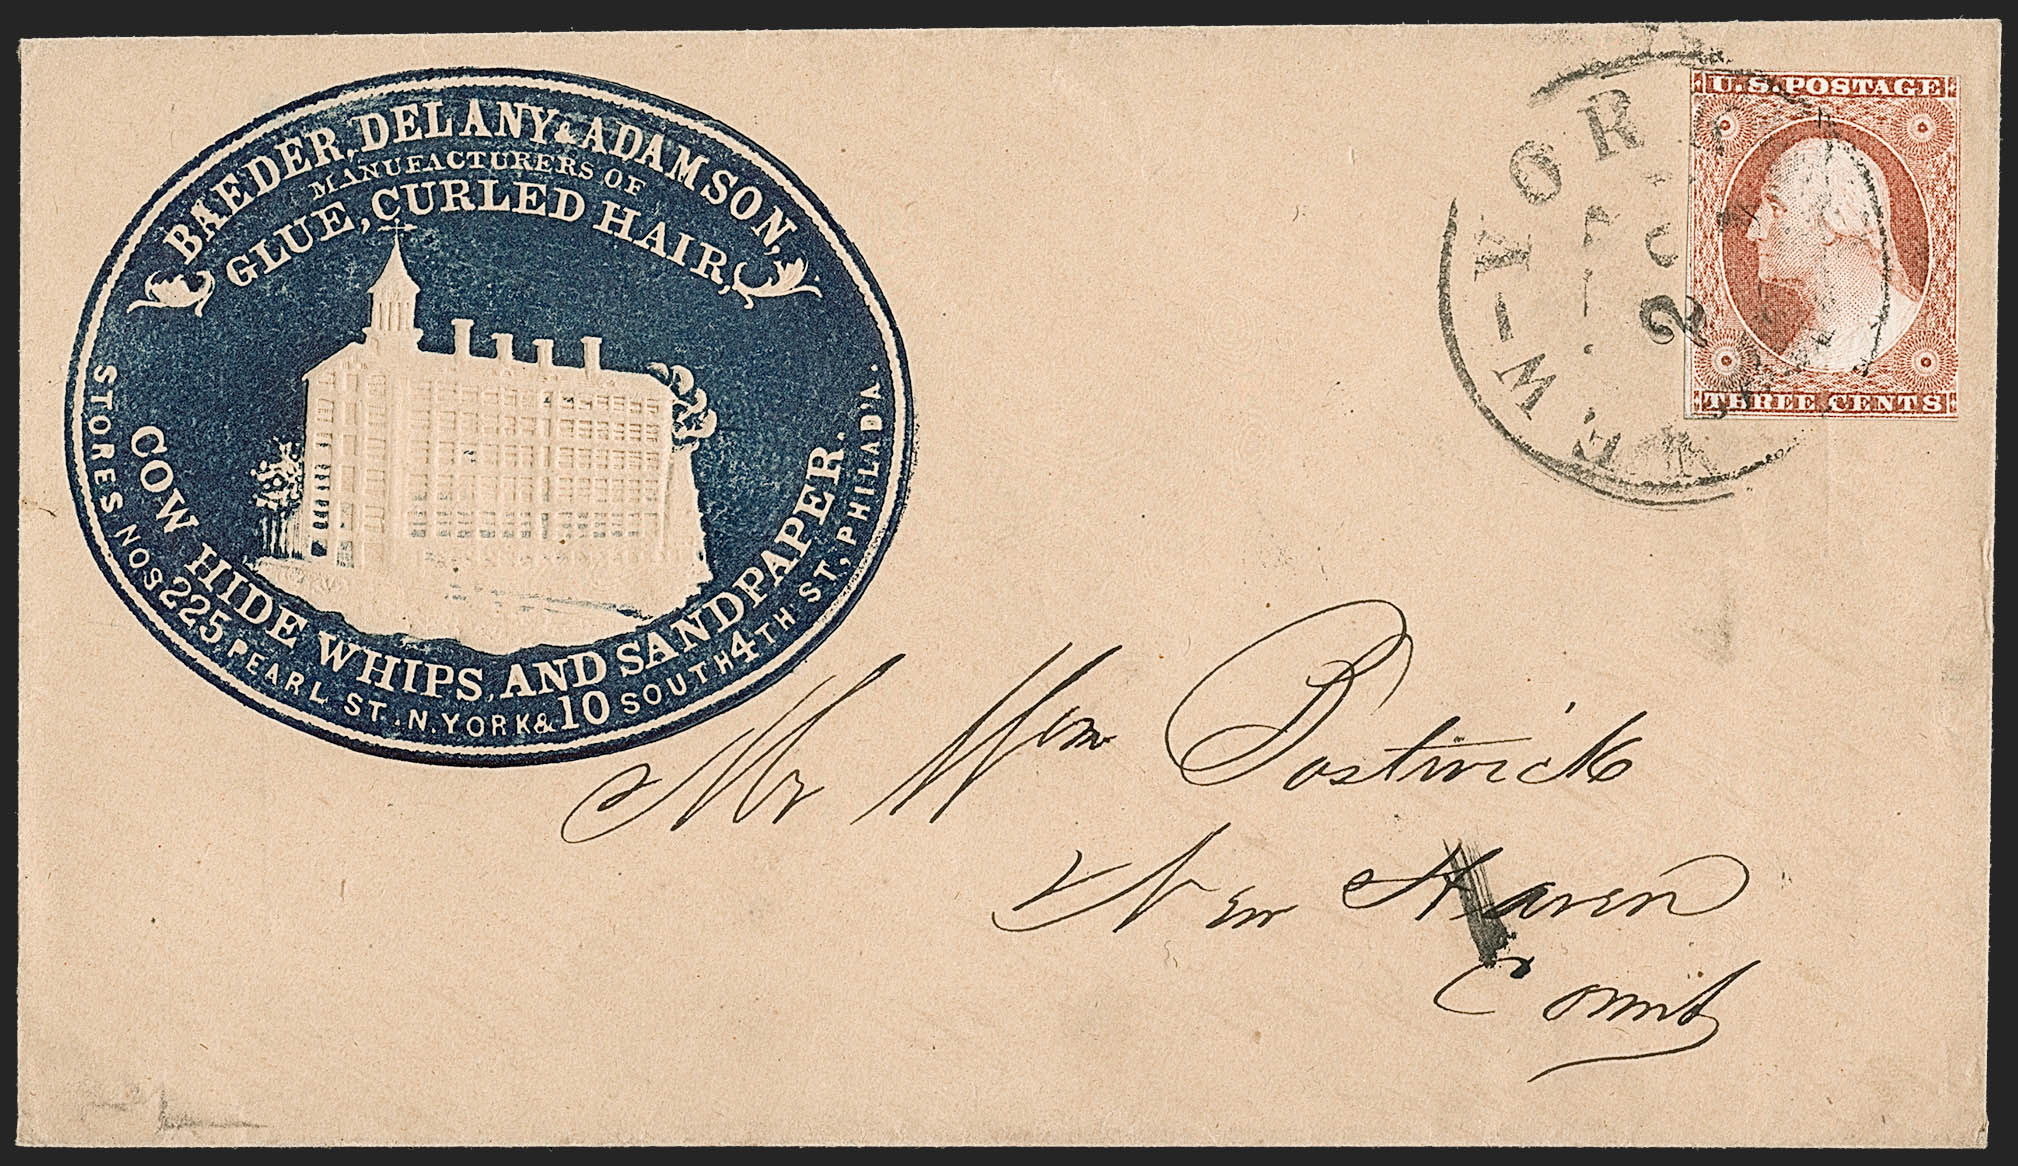 BAEDER, DELANY & ADAMSON,
MANUFACTURERS OF
GLUE, CURLED HAIR,
COW HIDE WHIPS, AND SANDPAPER.
STORES NOS 225 PEARL ST. N. YORK & 10 SOUTH 4TH ST, PHILADA.
NEW-YORK
2
U.S. POSTAGE
THREE CENTS
Mr Wm Bostwick
New Haven
Connt